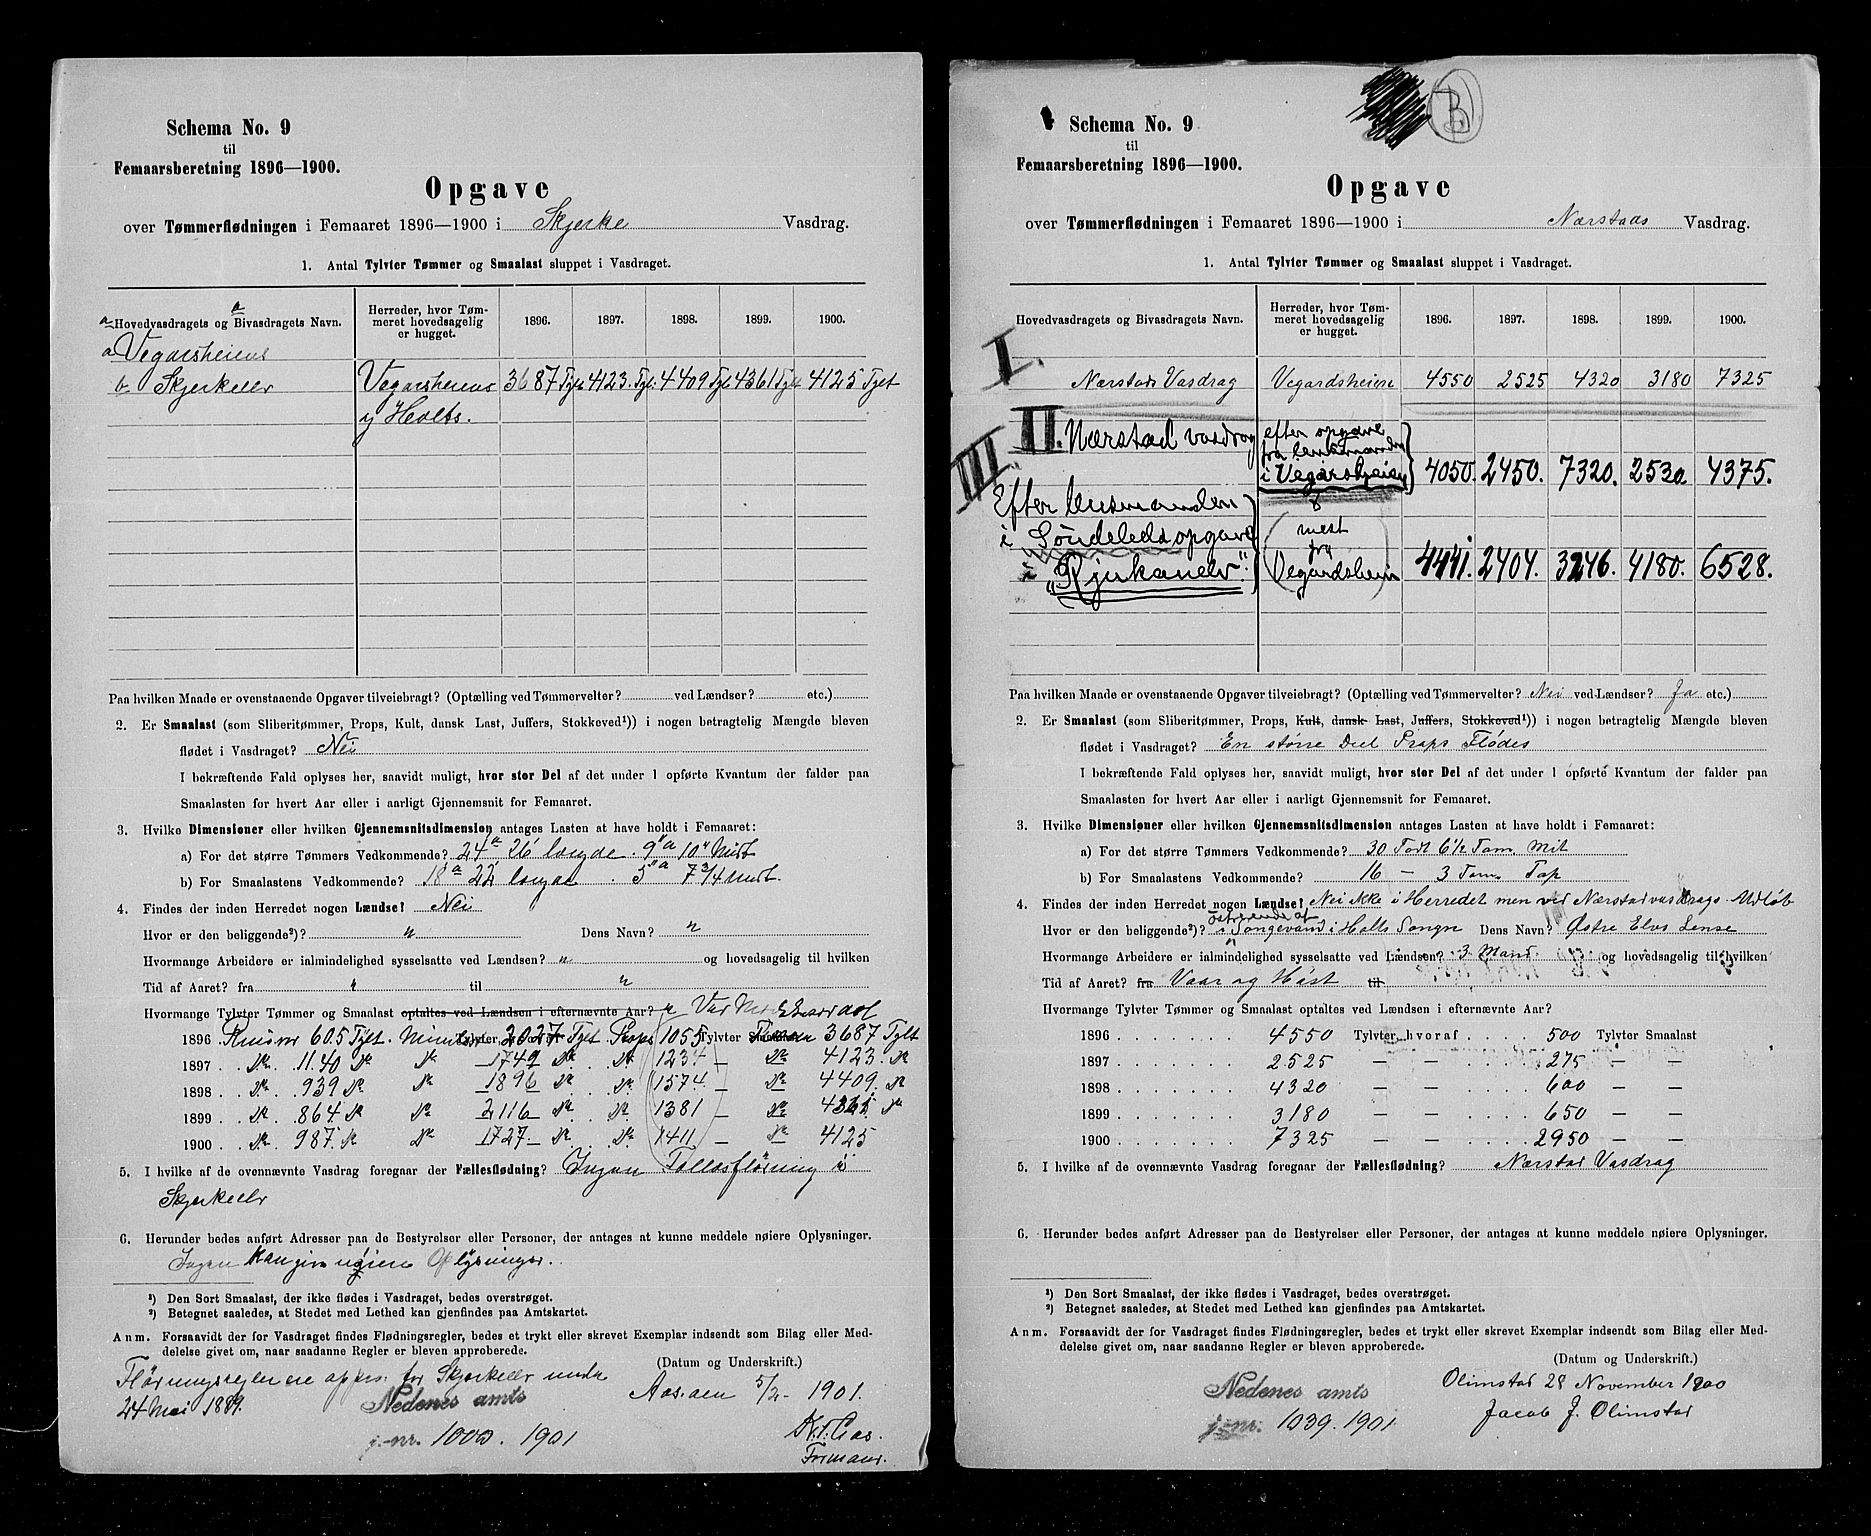 Schema No. 9
til
Femaarsberetning 1896—1900.
Opgave
over Tømmerflødningen i Femaaret 1896—1900 i Skjerke Vasdrag.
1. Antal Tylvter Tømmer og Smaalast sluppet i Vasdraget.
a Hovedvasdragets og a Bivasdragets Navn. Herreder, hvor Tømmeret hovedsagelig er hugget. 1896. 1897. 1898. 1899. 1900.
a Vegarsheiens
b Skjerkeelv Vegarsheiens 3687 Tylt 4123 Tyl. 4409 Tyl. 4361 Tylt 4125 Tylt
og Holts.
Paa hvilken Maade er ovenstaaende Opgaver tilveiebragt? (Optælling ved Tømmervelter? ved Lændser? etc.)
2. Er Smaalast (som Sliberitømmer, Props, Kult, dansk Last, Juffers, Stokkeved¹)) i nogen betragtelig Mængde bleven
flødet i Vasdraget? Nei
I bekræftende Fald oplyses her, saavidt muligt, hvor stor Del af det under 1 opførte Kvantum der falder paa
Smaalasten for hvert Aar eller i aarligt Gjennemsnit for Femaaret.
3. Hvilke Dimensioner eller hvilken Gjennemsnitsdimension antages Lasten at have holdt i Femaaret:
a) For det større Tømmers Vedkommende? 24 a 26' længde . 9" a 10" Midt
b) For Smaalastens Vedkommende? 18 a 22' længde . 5" a 7 3/4 Midt.
4. Findes der inden Herredet nogen Lændse? Nei
Hvor er den beliggende²)? " Dens Navn? "
Hvormange Arbeidere er ialmindelighed sysselsatte ved Lændsen? " og hovedsagelig til hvilken
Tid af Aaret? fra " til "
Hvormange Tylvter Tømmer og Smaalast optaltes ved Lændsen i efternævnte Aar?
1896 605 Tylt. 2027 Tylt Props 1055 Tylvter 3687 Tylt
1897 . . Do. 1140 Do Do 1749 Do . . Do. 1234 — Do 4123. Do
1898 . . Do. 939 Do Do 1896 Do . . Do. 1574 — Do 4409. Do
1899 . . Do. 864. Do Do 2116 Do . . Do. 1381 — Do 4361 Do
1900 . . Do. 987. Do Do 1727 — Do . . Do. 1411 — Do 4125
5. I hvilke af de ovennævnte Vasdrag foregaar der Fællesflødning? Ingen Fællesflødning i
Skjerkeelv
6. Herunder bedes anført Adresser paa de Bestyrelser eller Personer, der antages at kunne meddele nøiere Oplysninger.
Ingen kan give nøiere Oplysninger.
¹) Den Sort Smaalast, der ikke flødes i Vasdraget, bedes overstrøget.
²) Betegnet saaledes, at Stedet med Lethed kan gjenfindes paa Amtskartet.
Anm. Forsaavidt der for Vasdraget findes Flødningsregler, bedes et trykt eller skrevet Exemplar indsendt som Bilag eller Meddelelse givet om, naar saadanne Regler er bleven approberede.
(Datum og Underskrift.)
Flødningsregler ere appr. for Skjerkeelv under
24 Mai 1889.
Aasen 5/2 - 1901.
Nedenes amts
j.-nr. 1000. 1901
Formand.
B
Schema No. 9
til
Femaarsberetning 1896—1900.
Opgave
over Tømmerflødningen i Femaaret 1896—1900 i Nærstads Vasdrag.
1. Antal Tylvter Tømmer og Smaalast sluppet i Vasdraget.
Hovedvasdragets og Bivasdragets Navn. Herreder, hvor Tømmeret hovedsagelig er hugget. 1896. 1897. 1898. 1899. 1900.
I. Nærstads Vasdrag Vegardsheien 4550 2525 4320 3180 7325
II. Nærstad vasdrag efter opgave fra lensmanden i Vegarsheien 4050. 2450. 7320. 2530 4375.
III Efter lensmanden
i Søndeleds opgave
"Rjukanelv". mest fra Vegardsheien 4441. 2404. 3246. 4180. 6528.
Paa hvilken Maade er ovenstaaende Opgaver tilveiebragt? (Optælling ved Tømmervelter? Nei ved Lændser? Ja etc.)
2. Er Smaalast (som Sliberitømmer, Props, Kult, dansk Last, Juffers, Stokkeved¹)) i nogen betragtelig Mængde bleven
flødet i Vasdraget? En større Deel Props Flødes
I bekræftende Fald oplyses her, saavidt muligt, hvor stor Del af det under 1 opførte Kvantum der falder paa
Smaalasten for hvert Aar eller i aarligt Gjennemsnit for Femaaret.
3. Hvilke Dimensioner eller hvilken Gjennemsnitsdimension antages Lasten at have holdt i Femaaret:
a) For det større Tømmers Vedkommende? 30 Fodt 6½ Tom. Mit
b) For Smaalastens Vedkommende? 16 — 3 Tom. Top
4. Findes der inden Herredet nogen Lændse? Nei ikke i Herredet men ved Nærstadvasdrags Udløb
Hvor er den beliggende²)? østre ende af i Songevand i Holts Songn Dens Navn? Østre Elvs Lense
Hvormange Arbeidere er ialmindelighed sysselsatte ved Lændsen? 3 Mand. og hovedsagelig til hvilken
Tid af Aaret? fra Vaar og Høst til
Hvormange Tylvter Tømmer og Smaalast optaltes ved Lændsen i efternævnte Aar?
1896 4550 Tylvter hvoraf 500 Tylvter Smaalast
1897 2525 — — 275 — —
1898 4320 — — 600 — —
1899 3180 — — 650 — —
1900 7325 — — 2950 — —
5. I hvilke af de ovennævnte Vasdrag foregaar der Fællesflødning? Nærstad Vasdrag
6. Herunder bedes anført Adresser paa de Bestyrelser eller Personer, der antages at kunne meddele nøiere Oplysninger.
¹) Den Sort Smaalast, der ikke flødes i Vasdraget, bedes overstrøget.
²) Betegnet saaledes, at Stedet med Lethed kan gjenfindes paa Amtskartet.
Anm. Forsaavidt der for Vasdraget findes Flødningsregler, bedes et trykt eller skrevet Exemplar indsendt som Bilag eller Meddelelse givet om, naar saadanne Regler er bleven approberede.
(Datum og Underskrift.)
Olimstad 28 November 1900
Jacob J. Olimstad
Nedenes amts
j.-nr. 1039. 1901